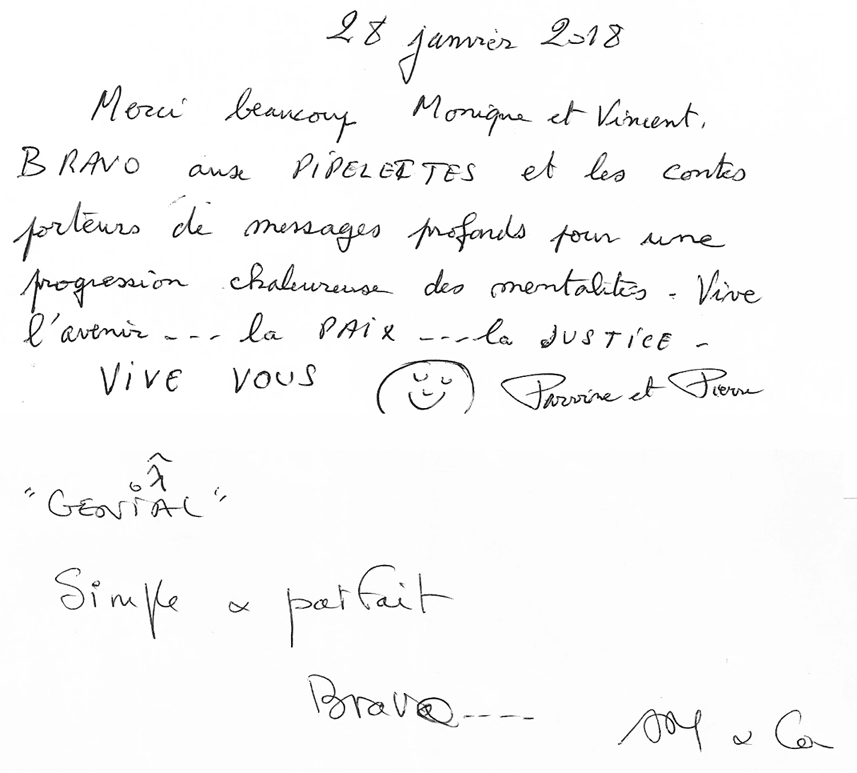 28 janvier 2018
Merci beaucoup Monique et Vincent.
BRAVO aux PIPELETTES et les contes
porteurs de messages profonds pour une
progression chaleureuse des mentalités. Vive
l'avenir --- la PAIX ---- la JUSTICE -
VIVE VOUS Perrine et Pierre
"GENIAL"
Simple & parfait
Bravo----
& Co